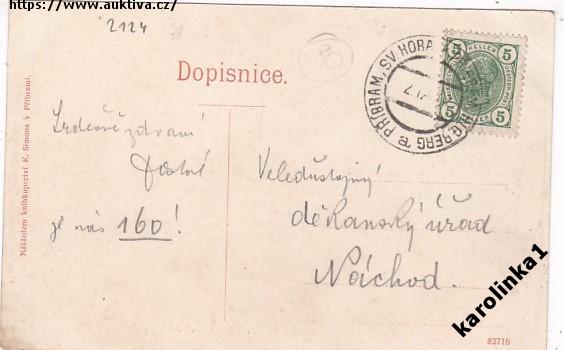 https://www.auktiva.cz/
2124
20
Dopisnice.
PŘÍBRAM, SV. HORA
5 HELLER 5
5 5
Srdečné zdraví
je nás 160!
Veledůstojný
děkanský úřad
Náchod.
Nákladem knihkupectví E. Simona v Příbrami.
82716
karolinka1